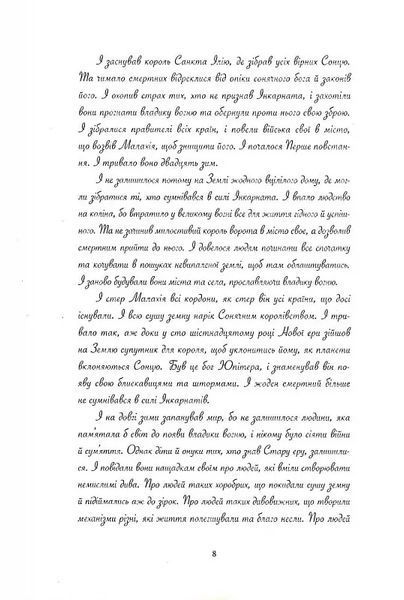 І заснував король Санкта Ілію, де зібрав усіх вірних Сонцю.
Та чимало смертних відреклися від опіки сонячного бога й законів
його. І охопив страх тих, хто не признав Інкарната, і захотіли
вони прогнати владику вогню та обернули проти нього свою зброю.
І зібралися правителі всіх країн, і повели війська свої в місто,
що возвів Малахія, щоб знищити його. І почалося Перше повстан-
ня. І тривало воно двадцять зим.
І не залишилося потому на Землі жодного вцілілого дому, де мог-
ли зібратися ті, хто сумнівався в силі Інкарната. І впало людство
на коліна, бо втратило у великому вогні все для життя гідного й успіш-
ного. Та не зачинив милостивий король ворота в місто своє, а дозволив
смертним прийти до нього. І довелося людям починати все спочатку
та кочувати в пошуках невипаленої землі, щоб там облаштуватись.
І заново будували вони міста та села, прославляючи владику вогню.
І стер Малахія всі кордони, як стер він усі країни, що досі
існували. І всю сушу земну нарік Сонячним королівством. І три-
вало так, аж доки у сто шістнадцятому році Нової ери зійшов
на Землю супутник для короля, щоб уклонитись йому, як планети
вклоняються Сонцю. Був це бог Юпітера, і знаменував він по-
яву свою блискавицями та штормами. І жоден смертний більше
не сумнівався в силі Інкарнатів.
І на довгі зими запанував мир, бо не залишилося людини, яка
пам'ятала б світ до появи владики вогню, і нікому було сіяти війни
й сум'яття. Однак діти й онуки тих, хто знав Стару еру, залишили-
ся. І повідали вони нащадкам своїм про людей, які вміли створювати
немислимі дива. Про людей таких хоробрих, що покидали сушу земну
й підіймались аж до зірок. Про людей таких дивовижних, що творили
механізми різні, які життя полегшували та благо несли. Про людей
8